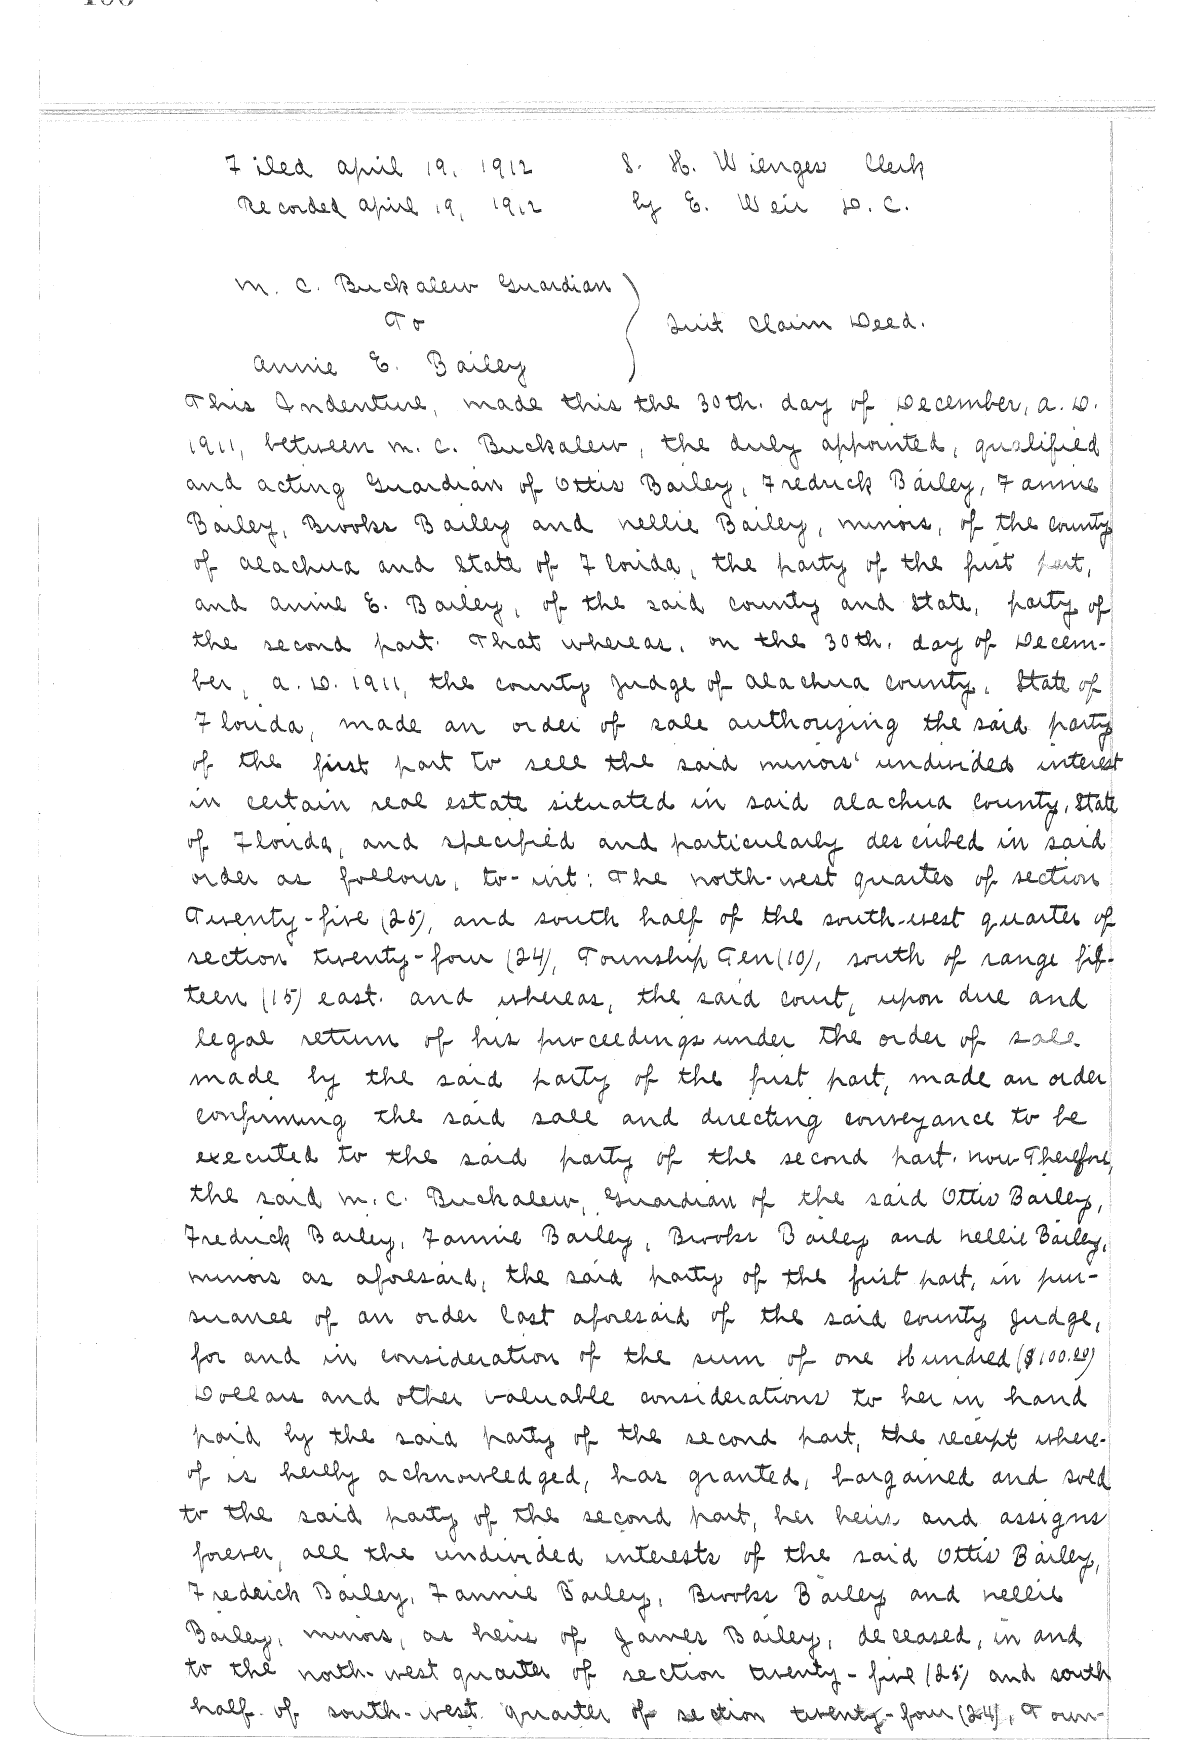 Filed April 19, 1912 S. H. Wienges Clerk
Recorded April 19, 1912 by E. Weir D.C.
M. C. Buckalew Guardian
To Quit Claim Deed.
Annie E. Bailey
This Indenture, made this the 30th. day of December, A. D.
1911, between M. C. Buckalew, the duly appointed, qualified
and acting Guardian of Ottis Bailey, Fredrick Bailey, Fannie
Bailey, Brooks Bailey and Nellie Bailey, minors, of the County
of Alachua and State of Florida, the party of the first part,
and Annie E. Bailey, of the said County and State, party of
the second part. That whereas, on the 30th. day of Decem-
ber, A. D. 1911, the County Judge of Alachua County, State of
Florida, made an order of sale authorizing the said party
of the first part to sell the said minors' undivided interest
in certain real estate situated in said Alachua County, State
of Florida, and specified and particularly described in said
order as follows, to-wit: The north-west quarter of section
Twenty-five (25), and south half of the south-west quarter of
section twenty-four (24), Township Ten (10), south of range fif-
teen (15) east. And whereas, the said court, upon due and
legal return of his proceedings under the order of sale
made by the said party of the first part, made an order
confirming the said sale and directing conveyance to be
executed to the said party of the second part. Now Therefore,
the said M. C. Buckalew, Guardian of the said Ottis Bailey,
Fredrick Bailey, Fannie Bailey, Brooks Bailey and Nellie Bailey,
minors as aforesaid, the said party of the first part, in pur-
suance of an order last aforesaid of the said County Judge,
for and in consideration of the sum of One Hundred ($100.00)
Dollars and other valuable considerations to her in hand
paid by the said party of the second part, the receipt where-
of is hereby acknowledged, has granted, bargained and sold
to the said party of the second part, her heirs and assigns
forever, all the undivided interests of the said Ottis Bailey,
Fredrick Bailey, Fannie Bailey, Brooks Bailey and Nellie
Bailey, minors, as heirs of James Bailey, deceased, in and
to the north-west quarter of section twenty-five (25) and south
half of south-west quarter of section twenty-four (24), Town-